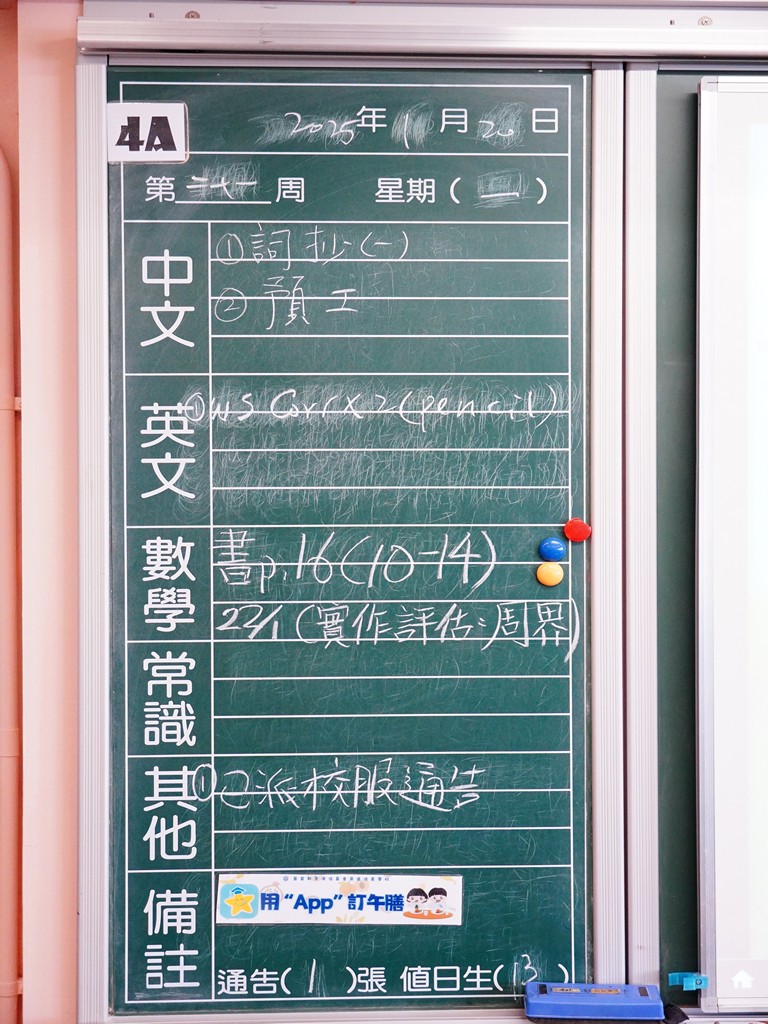 4A
2025年1月20日
第二十一周 星期(一)
中文
①詞抄(一)
②預工
英文
①WS Corr x 2 (pencil)
數學
書p.16(10-14)
22/1 (實作評估:周界)
常識
其他
①已派校服通告
備註
用“App”訂午膳
通告(1)張 值日生(13)